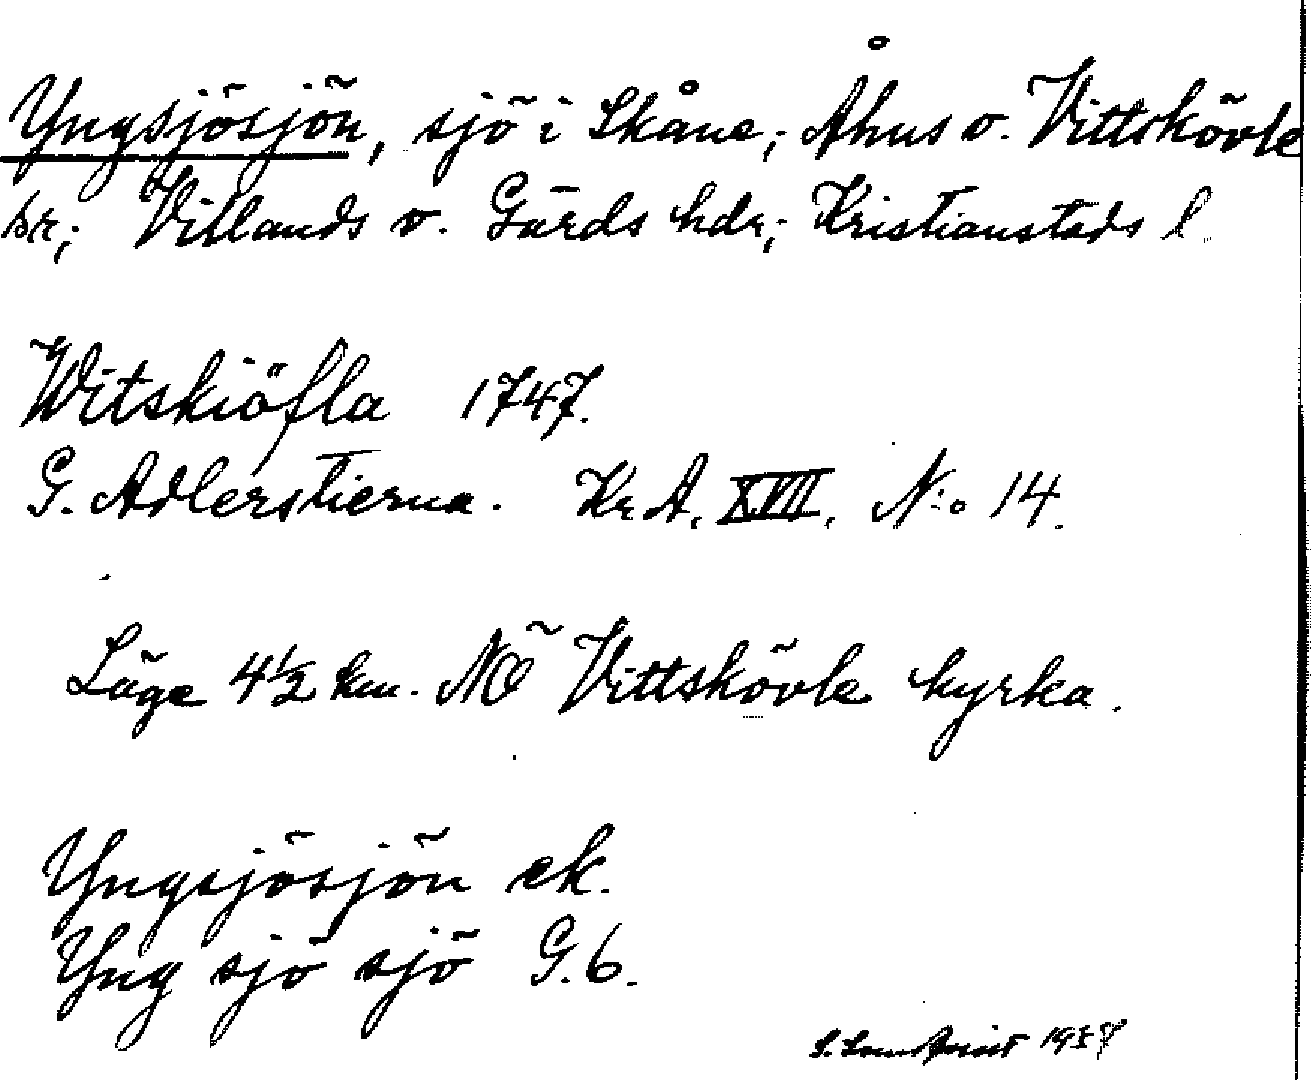 Yngsjösjön, sjö i Skåne; Åhus o. Vittskövle
snr; Villands o. Gärds hdr; Kristianstads l.
Witskiöfla 1747.
G. Adlerstierna. Kr A. XVII. N:o 14.
Läge 4½ km. NÖ Vittskövle kyrka.
Yngsjösjön ek.
Yng sjö sjö G.6.